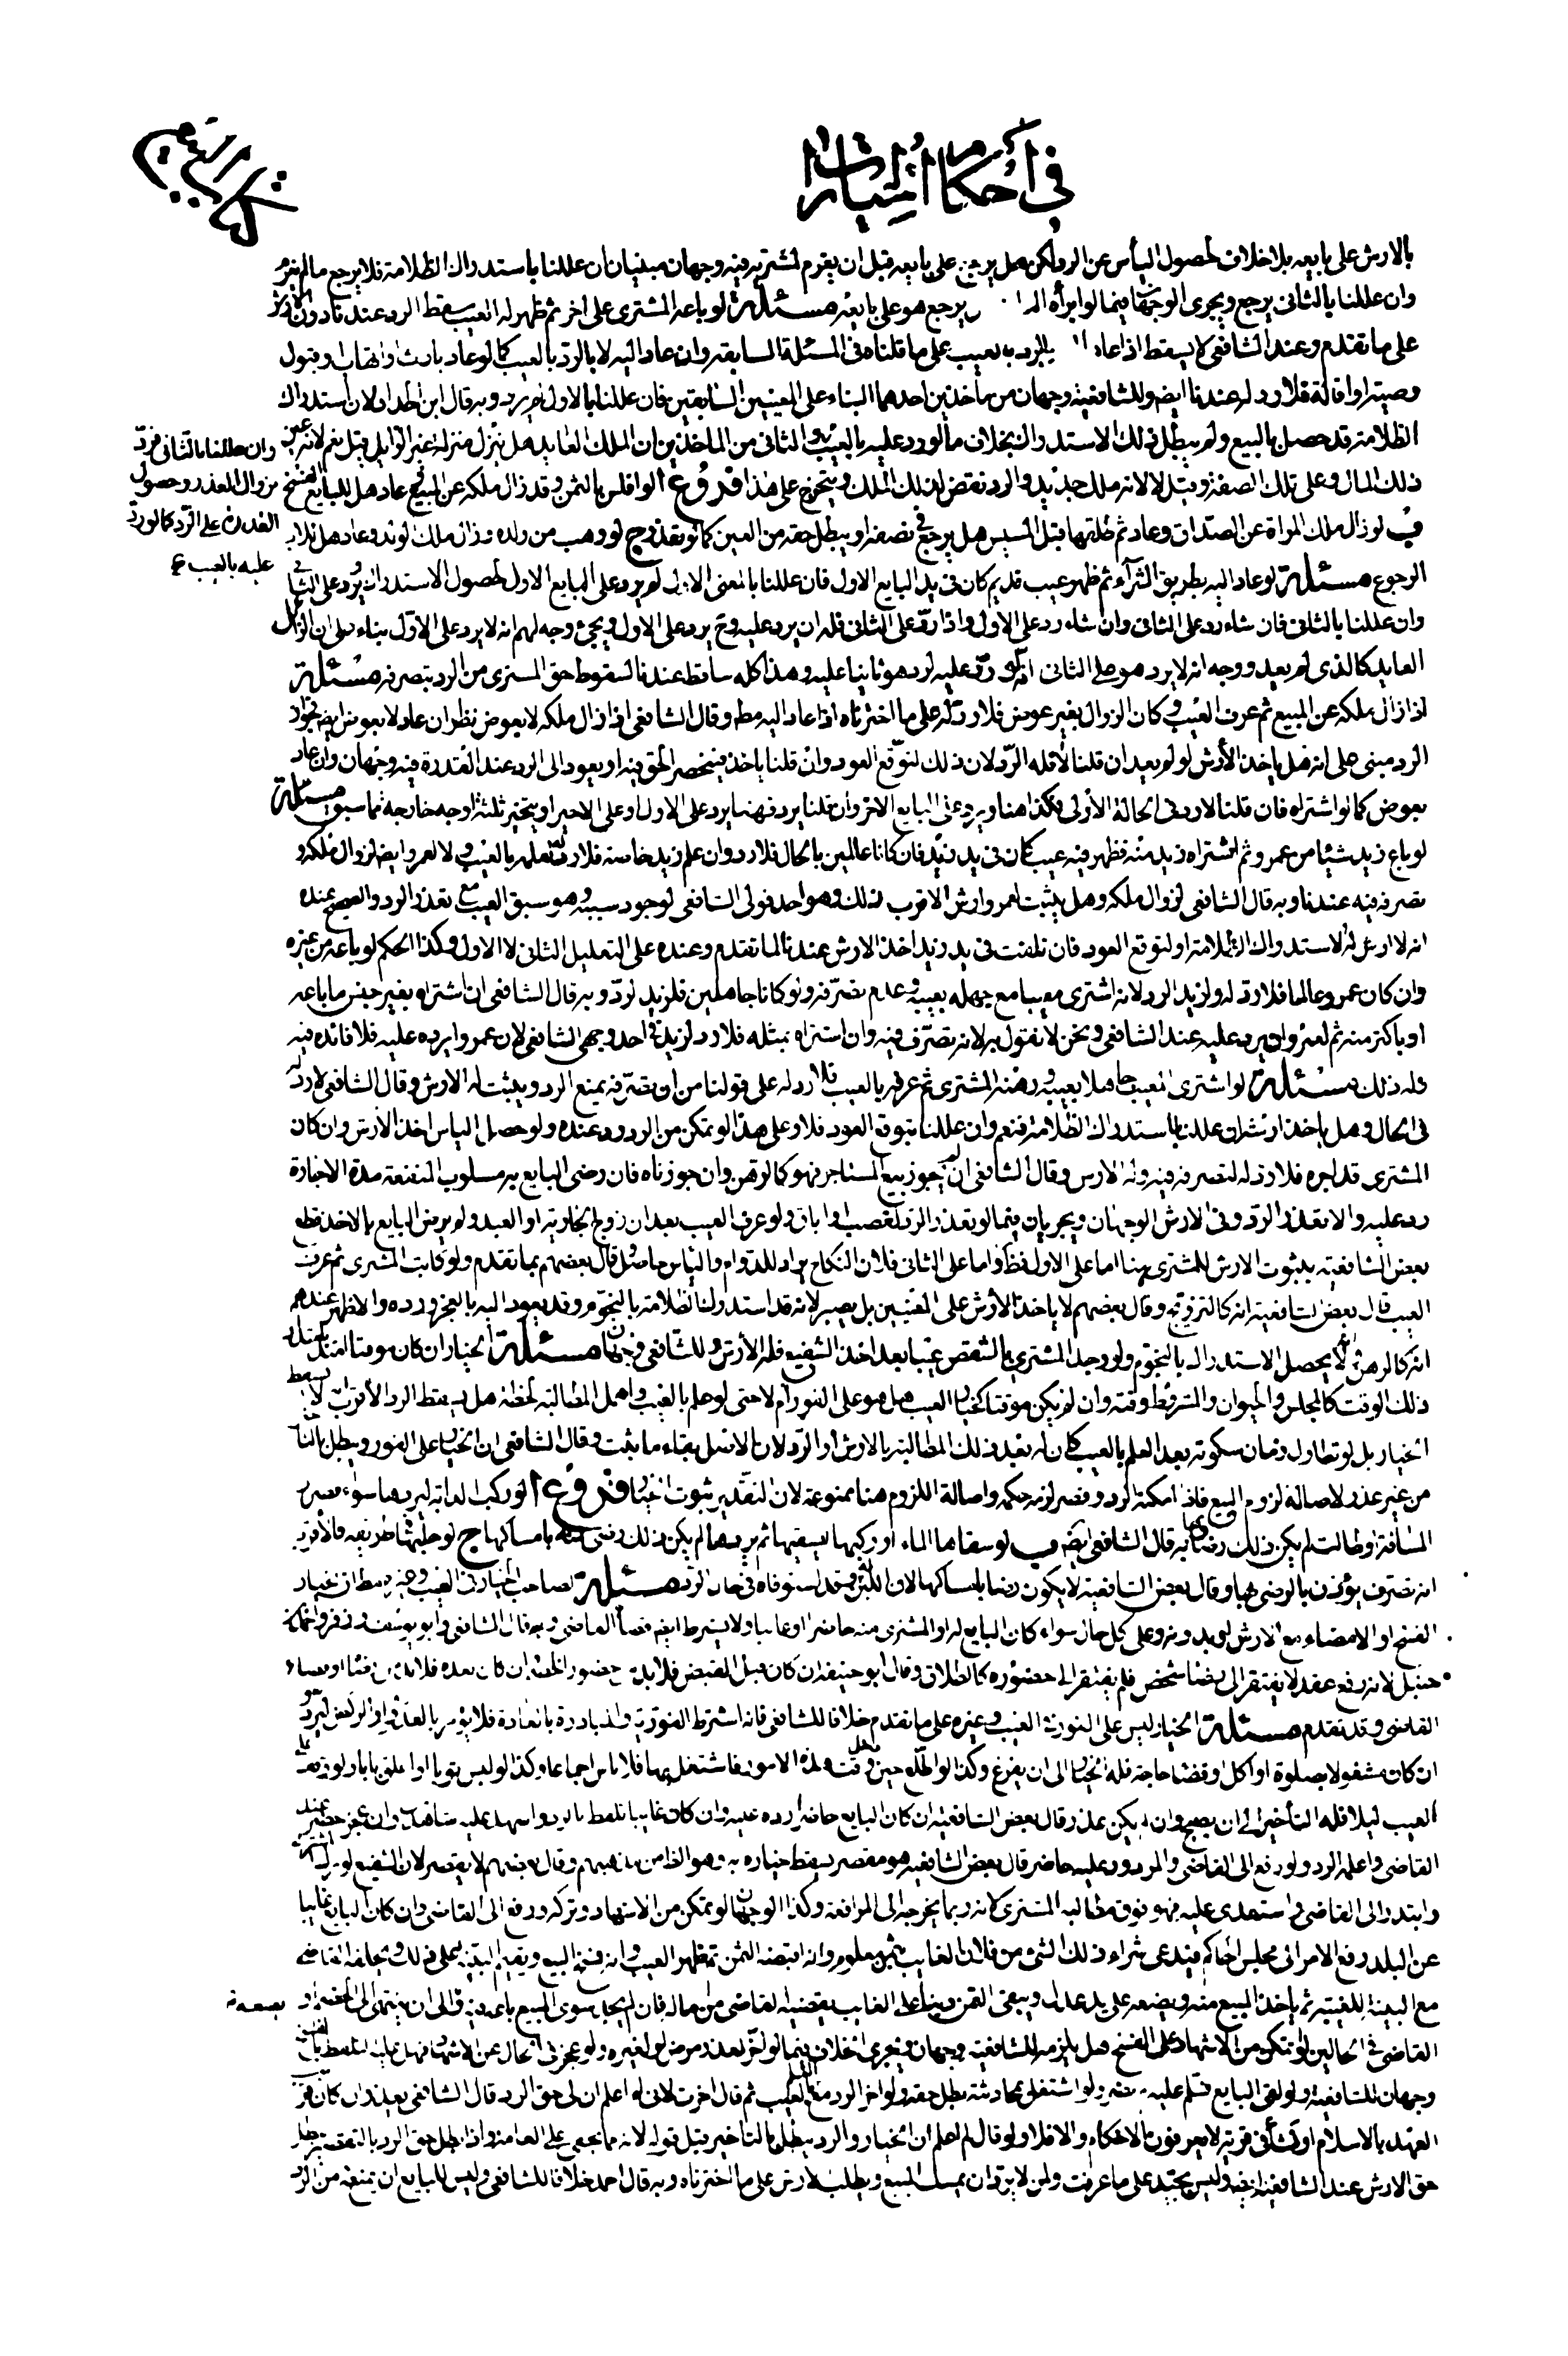 في احكام الخيارات
بالارش على بايعه بلا خلاف لحصول اليأس عن الرد ولكن هل يرجع على بايعه قبل ان يغرم لمشتريه فيه وجهان مبنيان ان عللنا باستدراك الظلامة فلا يرجع ما لم يغرم
وان عللنا بالثاني يرجع ويجرى الوجهان فيما لو ابرأه يرجع هو على بايعه مسئلة لو باعه المشترى على اخر ثم ظهر له العيب سقط الرد عندنا دون الارش
على ما تقدم وعند الشافعى لا يسقط اذا عاد بالرد بالعيب على ما قلناه فى المسئلة السابقة وان عاد اليه لا بالرد بالعيب كما لو عاد بارث او اتهاب او قبول
وصية او اقالة فلا رد له عندنا ايضا وللشافعية وجهان من مأخذين احدهما البناء على المعنيين السابقين فان عللنا بالاول لم يرد وبه قال ابن الحداد لان استدراك
الظلامة قد حصل بالبيع ولم يبطل ذلك الاستدراك بخلاف ما لو رد عليه بالعيب والثانى من المأخذين ان الملك العايد هل ينزل منزلة غير الزايل قيل نعم لانه عين
وان عللنا بالثانى فيرد
ذلك المال وعلى تلك الصفة وقيل لا لانه ملك جديد والرد نقض لذلك الملك ويتخرج على هذا فروع ا لو افلس بالثمن وقد زال ملكه عن المبيع وعاد هل للبايع الفسخ
لزوال العذر وحصول
ب لو زال ملك المراة عن الصداق وعاد ثم طلقها قبل المسيس هل يرجع فى نصفه او يبطل حقه من العين كما لو تعذر ج لو وهب من ولده وزال ملك الولد وعاد هل للاب
القدرة على الرد كما لو رد
عليه بالعيب
الرجوع مسئلة لو عاد اليه بطريق الشرآء ثم ظهر عيب قديم كان فى يد البايع الاول فان عللنا بالمعنى الاول لم يرد على البايع الاول لحصول الاستدراك ويرد على الثانى
وان عللنا بالثانى فان شاء رد على الثانى وان شاء رد على الاول واذا رد على الثانى فله ان يرد عليه وح يرد على الاول ويجئ وجه لهم انه لا يرد على الاول بناء على ان الزايل
العايد كالذى لم يعد ووجه انه لا يرد على الثانى لانه لو رد عليه لرد هو ثانيا عليه وهذا كله ساقط عندنا لسقوط حق المشترى من الرد بتصرفه مسئلة
اذا زال ملكه عن المبيع ثم عرف العيب وكان الزوال بغير عوض فلا رد له على ما اخترناه اذا عاد اليه مط وقال الشافعى اذا زال ملكه لا بعوض نظر ان عاد لا بعوض ايضا فجواز
الرد مبنى على انه هل ياخذ الأرش لو لم يعد ان قلنا لا فله الرد لان ذلك لتوقع العود وان قلنا ياخذ فينحصر الحق فيه او يعود الى الرد عند القدرة فيه وجهان وان عاد
بعوض كما لو اشتراه فان قلنا لا رد فى الحالة الأولى فكذا هنا ويرد على البايع الاخر وان قلنا يرد فهنا يرد على الاول او على الاخير او يتخير ثلثة اوجه خارجة مما سبق مسئلة
لو باع زيد شيئا من عمرو ثم اشتراه زيد منه فظهر فيه عيب كان فى يد زيد فان كانا عالمين بالحال فلا رد وان علم زيد خاصة فلا رد له لعلمه بالعيب ولا لعمرو ايضا لزوال ملكه و
تصرفه فيه عندنا وبه قال الشافعى لزوال ملكه وهل يثبت لعمرو ارش الاقرب ذلك وهو احد قولى الشافعى لوجود سببه وهو سبق العيب مع تعذر الرد والصحيح عنده
انه لا ارش له لاستدراك الظلامة او لتوقع العود فان تلفت فى يد زيد اخذ الارش عندنا لما تقدم وعنده على التعليل الثانى لا الاول وكذا الحكم لو باعه من غيره
وان كان عمرو عالما فلا رد له ولزيد الرد لانه اشترى معيبا مع جهله بعيبه وعدم تصرفه ولو كانا جاهلين فلزيد لرد وبه قال الشافعى ان اشتراه بغير جنس ما باعه
او باكثر منه ثم لعمرو ان يرد عليه عند الشافعى ونحن لا نقول به لانه تصرف فيه وان اشتراه بمثله فلا رد لزيد فى احد وجهى الشافعى لان عمروا يرده عليه فلا فائدة فيه
وله ذلك مسئلة لو اشترى المعيب جاهلا بعيبه ورهنه المشترى ثم عرف بالعيب فلا رد له على قولنا من ان تصرفه يمنع الرد ويثبت له الارش وقال الشافعى لا رد له
فى الحال وهل ياخذ ارشا ان عللنا باستدراك الظلامة فنعم وان عللنا بتوقع العود فلا وعلى هذا لو تمكن من الرد رد عنده ولو حصل اليأس اخذ الأرش وان كان
المشترى قد اجره فلا رد له لتصرفه فيه وله الارش وقال الشافعى ان لم يجوز بيع المستاجر فهو كالرهن وان جوزناه فان رضى البايع به مسلوب المنفعة مدة الاجارة
رد عليه والا تعذر الرد وفى الارش الوجهان ويجريان فيما لو تعذر الرد لغصب او اباق ولو عرف العيب بعد ان زوج الجارية او العبد ولم يرض البايع بالاخذ قطع
بعض الشافعية بثبوت الارش للمشترى هنا اما على الاول فظ واما على الثانى فلان النكاح يراد للدوام واليأس حاصل وقال بعضهم بما تقدم ولو كاتب المشترى ثم عرف
العيب قال بعض الشافعية انه كالتزويج وقال بعضهم لا ياخذ الأرش على المعنيين بل يصبر لانه قد استدرك الظلامة بالنجوم وقد يعود اليه بالعجز فيرده والاظهر عندهم
انه كالرهن لا يحصل الاستدراك بالنجوم ولو وجد المشترى بالشقص عيبا بعد اخذ الشفيع فله الأرش وللشافعى وجهان مسئلة الخيار ان كان موقتا امتد بامتداد
ذلك الوقت كالمجلس والحيوان والشرط وقته وان لم يكن موقتا كخيار العيب هل هو على الفور ام لا حتى لو علم بالعيب واهمل المطالبة لحظة هل يسقط الرد الأقرب لا يسقط
الخيار بل لو تطاول زمان سكوته بعد العلم بالعيب كان له بعد ذلك المطالبة بالارش او الرد لان الاصل بقاء ما ثبت وقال الشافعى ان الخيار على الفور ويبطل بالتأخير
من غير عذر لاصالة لزوم البيع فاذا امكنه الرد وقصر لزمه حكمه واصالة اللزوم هنا ممنوعة لان التقدير ثبوت الخيار فروع ا لو ركب الدابة ليردها سواء قصرت
المسافة او طالت لم يكن ذلك رضا بها وبه قال الشافعى ايضا ب لو سقاها الماء او ركبها ليسقيها ثم يردها لم يكن ذلك رضى منه بامساكها ج لو حلبها فى طريقه فالأقرب
انه تصرف يؤذن بالرضى بها وقال بعض الشافعية لا يكون رضا بامساكها لان اللبن له وقد استوفاه فى حال الرد مسئلة لصاحب الخيار فى العيب وغيره مط ان يختار
الفسخ او الامضاء مع الارش او بدونه وعلى كل حال سواء كان البايع له او المشترى منه حاضرا او غايبا ولا يشترط ايضا قضاء القاضى وبه قال الشافعى وابو يوسف وزفر واحمد بن
حنبل لانه رفع عقد لا يفتقر الى رضا شخص فلم يفتقر الى حضوره كالطلاق وقال ابو حنيفة ان كان قبل القبض فلا بد حضور الخصم وان كان بعده فلا بد من رضاه او قضاء
القاضى وقد تقدم مسئلة الخيار ليس على الفور فى العيب وغيره على ما تقدم خلافا للشافعى فانه اشترط الفورية والمبادرة بالعادة فلا يؤمر بالعدو او الركض ليرد و
ان كان مشغولا بصلوة او اكل او قضاء حاجة فله الخيار الى ان يفرغ وكذا لو اطلع حين دخل وقت هذه الامور فاشتغل بها فلا باس اجماعا وكذا لو لبس ثوبا او اغلق بابا ولو وقف على
العيب ليلا فله التأخير الى ان يصبح وان لم يكن عذر قال بعض الشافعية ان كان البايع حاضرا رده عليه وان كان غايبا تلفظ بالرد واشهد عليه شاهدين وان عجز حضر عند
القاضى واعلمه الرد ولو رفع الى القاضى والمردود عليه حاضر قال بعض الشافعية هو مقصر يسقط خياره به وهو الظ من مذهبهم وقال بعضهم لا يقصر لان الشفيع لو ترك المشترى
وابتدر الى القاضى واستعدى عليه فهو فوق مطالبة المشترى لانه ربما يحوجه الى المرافعة وكذا الوجهان لو تمكن من الاشهاد وتركه ورفع الى القاضى وان كان البايع غايبا
عن البلد رفع الامر الى مجلس الحاكم فيدعى شراء ذلك الشئ من فلان الغايب بثمن معلوم وانه اقبضه الثمن ثم ظهر العيب وانه فسخ البيع ويقيم البينة على ذلك ويحلفه القاضى
مع البينة للغيبة ثم ياخذ المبيع منه ويضعه على يد عدل ويبقى الثمن دينا على الغايب يقضيه القاضى من ماله فان لم يجد سوى المبيع باعه فيه والى ان ينتهى الى الخصم او
القاضى فى الحالين لو تمكن من الاشهاد على الفسخ هل يلزمه للشافعية وجهان ويجرى الخلاف فيما لو اخر لعذر مرض او غيره ولو عجز فى الحال عن الاشهاد فهل عليه التلفظ بالفسخ
وجهان للشافعية ولو لقى البايع فسلم عليه لم يضر ولو اشتغل بمحادثته بطل حقه ولو اخر الرد مع العلم بالعيب ثم قال اخرت لانى لم اعلم ان لى حق الرد قال الشافعى يعذر ان كان قريب
العهد بالاسلام او نشأ فى قرية لا يعرفون الاحكام والا فلا ولو قال لم اعلم ان الخيار والرد يبطل بالتاخير قبل قوله لانه مما يخفى على العامة واذا بطل حق الرد بالتقصير بطل
حق الارش عند الشافعية ايضا وليس بجيد على ما عرفت ولمن لا يرد ان يمسك المبيع ويطلب الارش على ما اخترناه وبه قال احمد خلافا للشافعى وليس للبايع ان يمنعه من الرد